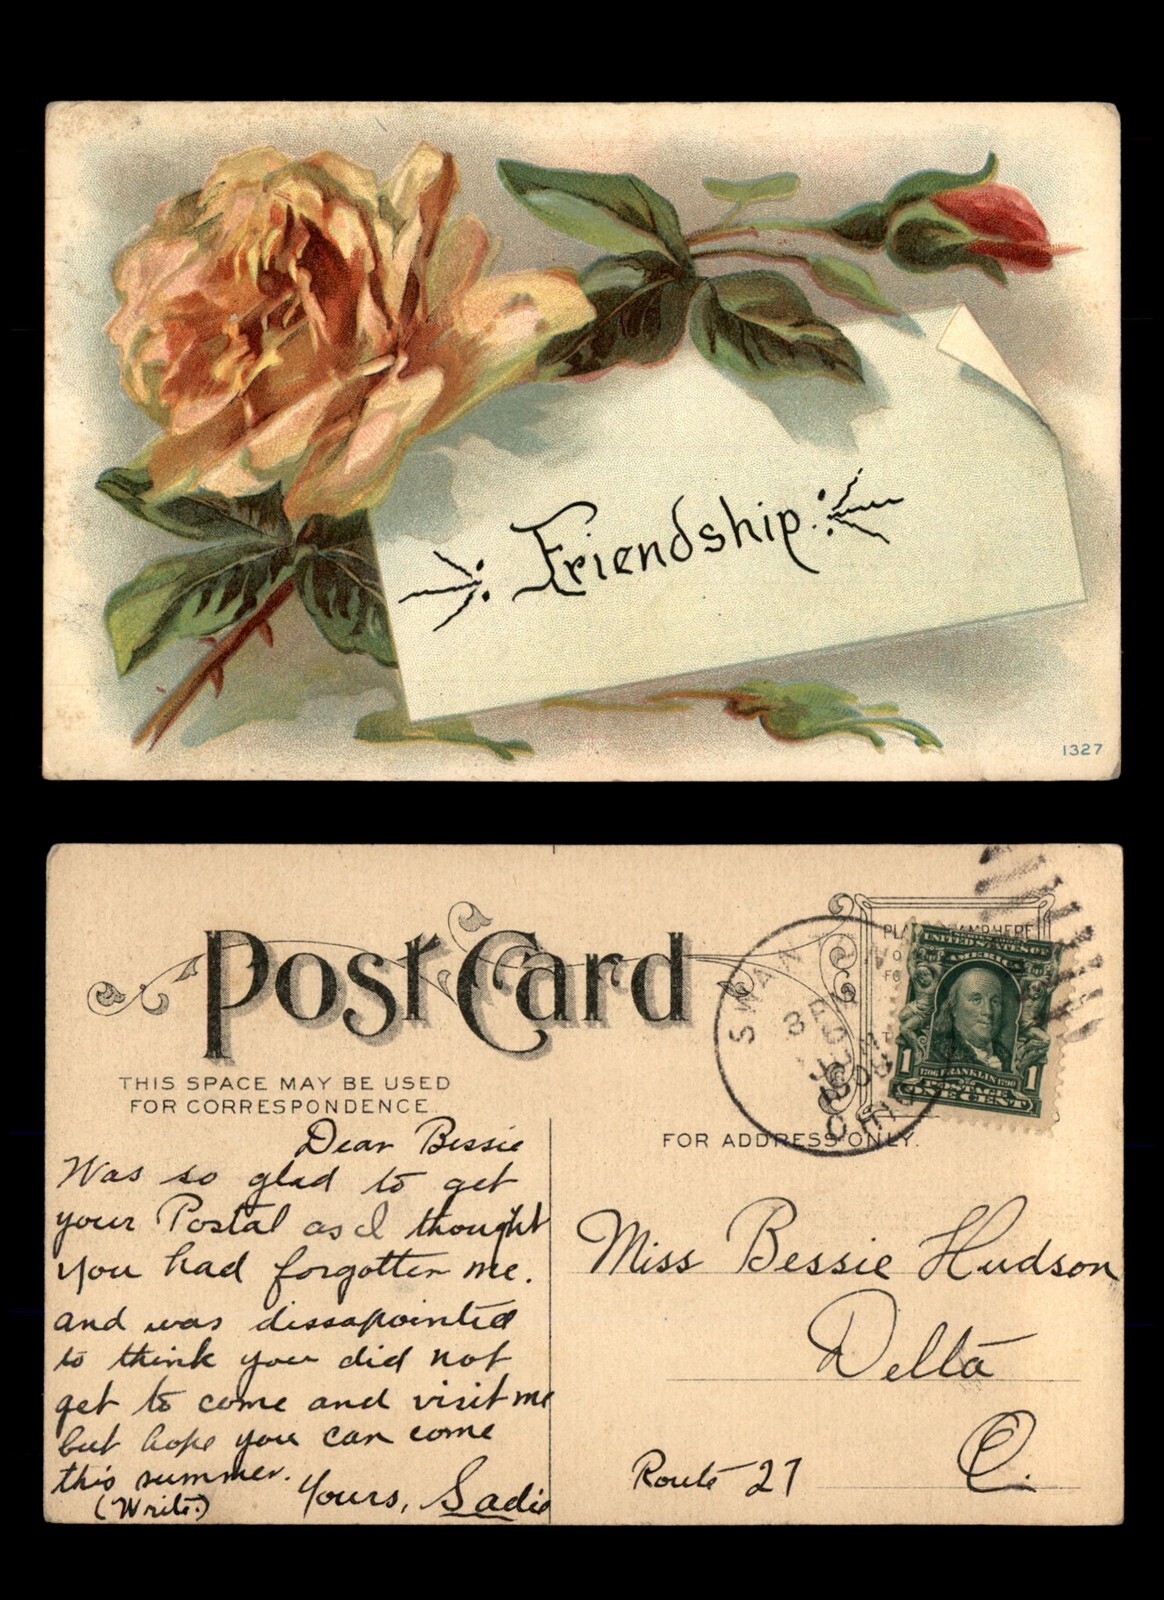 Friendship
1327
Post Card
THIS SPACE MAY BE USED
FOR CORRESPONDENCE.
FOR ADDRESS ONLY.
SWAN
1908
UNITED STATES OF
AMERICA
1 1706 FRANKLIN 1790 1
POSTAGE
ONE CENT
Dear Bessie
Was so glad to get
your Postal as I thought
you had forgotten me.
and was dissapointed
to think you did not
get to come and visit me
but hope you can come
this summer.
(Write.) Yours, Sadie
Miss Bessie Hudson
Delta
Route 27 O.